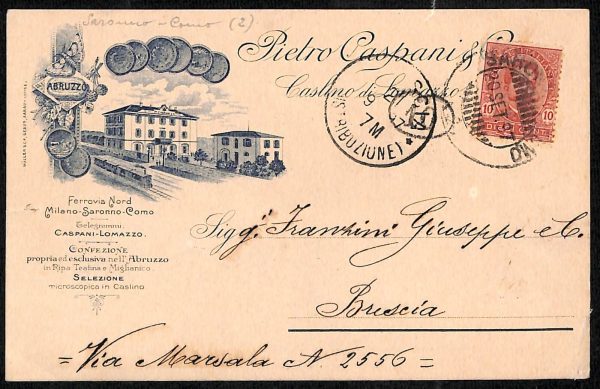 Saronno - Como (2)
Pietro Caspani &
Castino di Lomazzo
ABRUZZO
10
7M
(RIBUZIONE)
Ferrovia Nord
Milano-Saronno-Como
Telegrammi:
CASPANI-LOMAZZO.
CONFEZIONE
propria ed esclusiva nell'Abruzzo
in Ripa Teatina e Miglianico.
SELEZIONE
microscopica in Caslino
Sigg. Franzini Giuseppe e C.
Brescia
= Via Marsala N. 2556 =